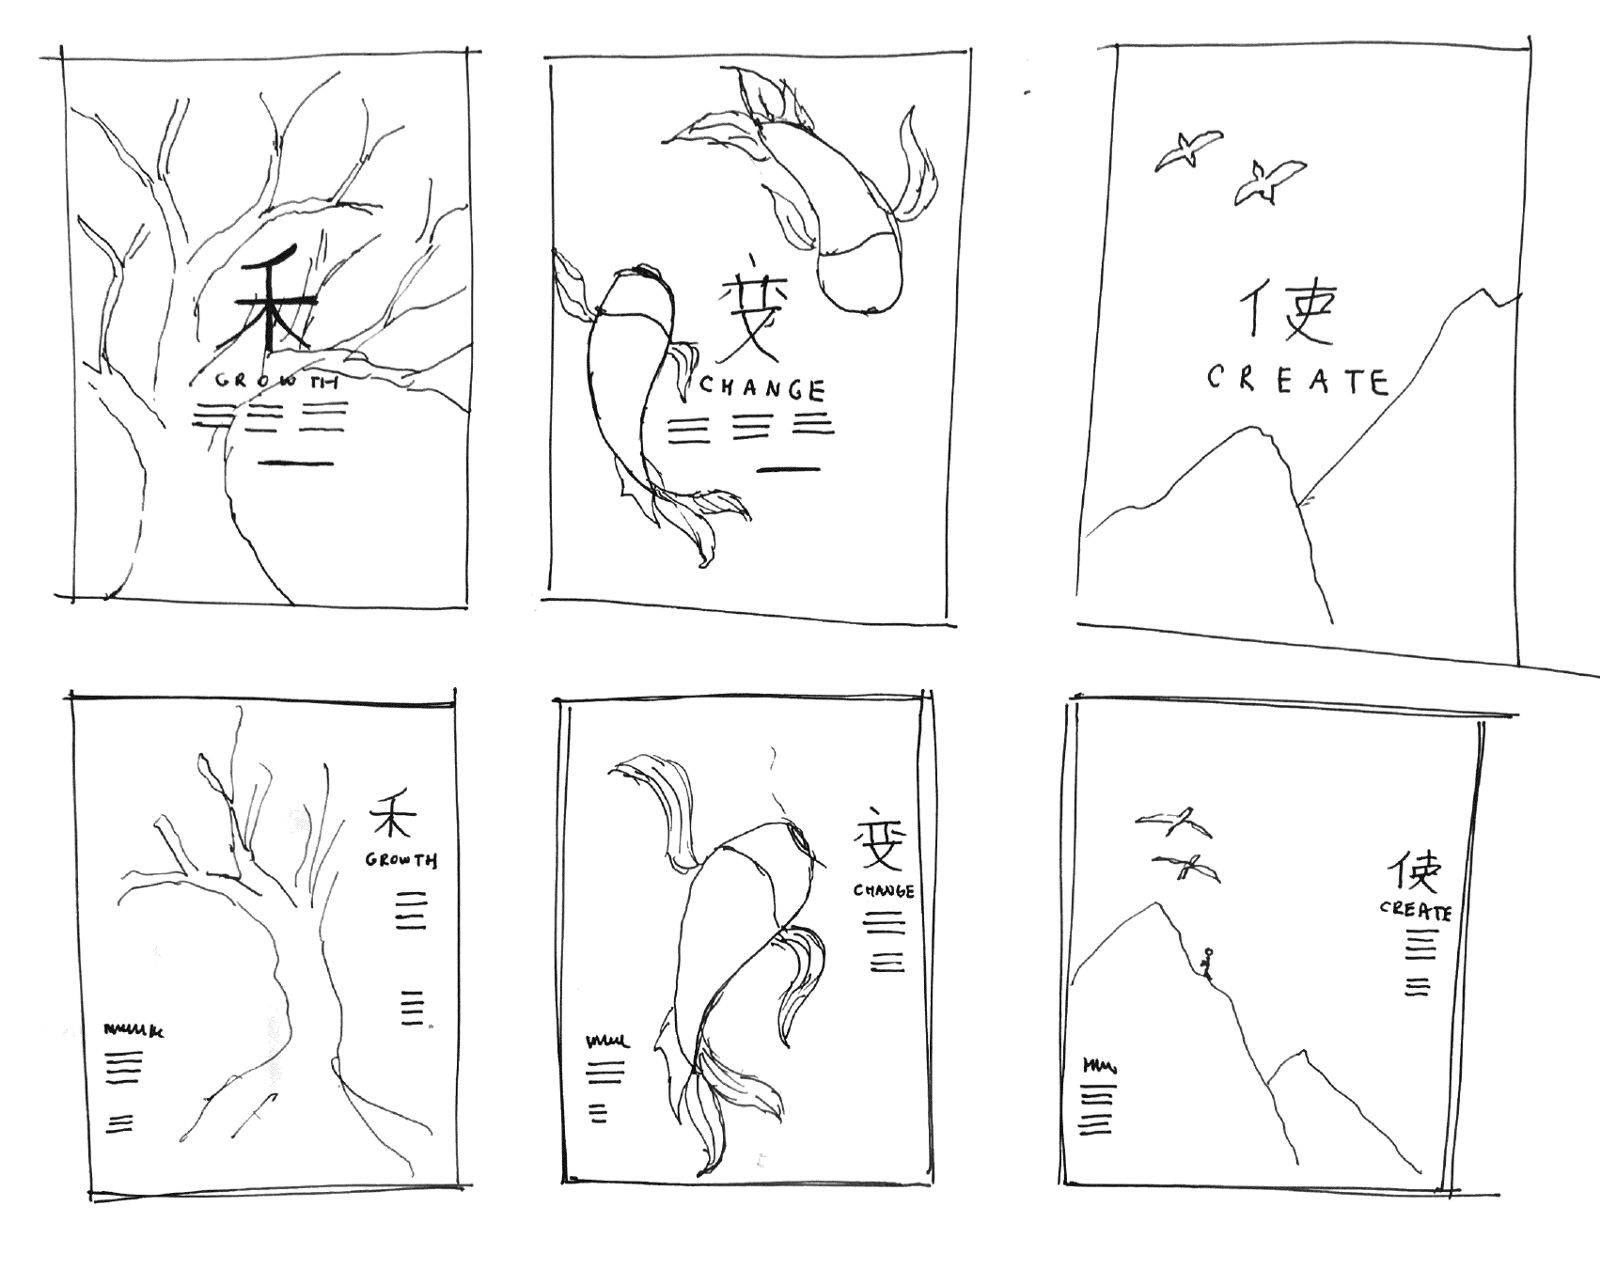 禾
GROWTH
变
CHANGE
使
CREATE
禾
GROWTH
变
CHANGE
使
CREATE